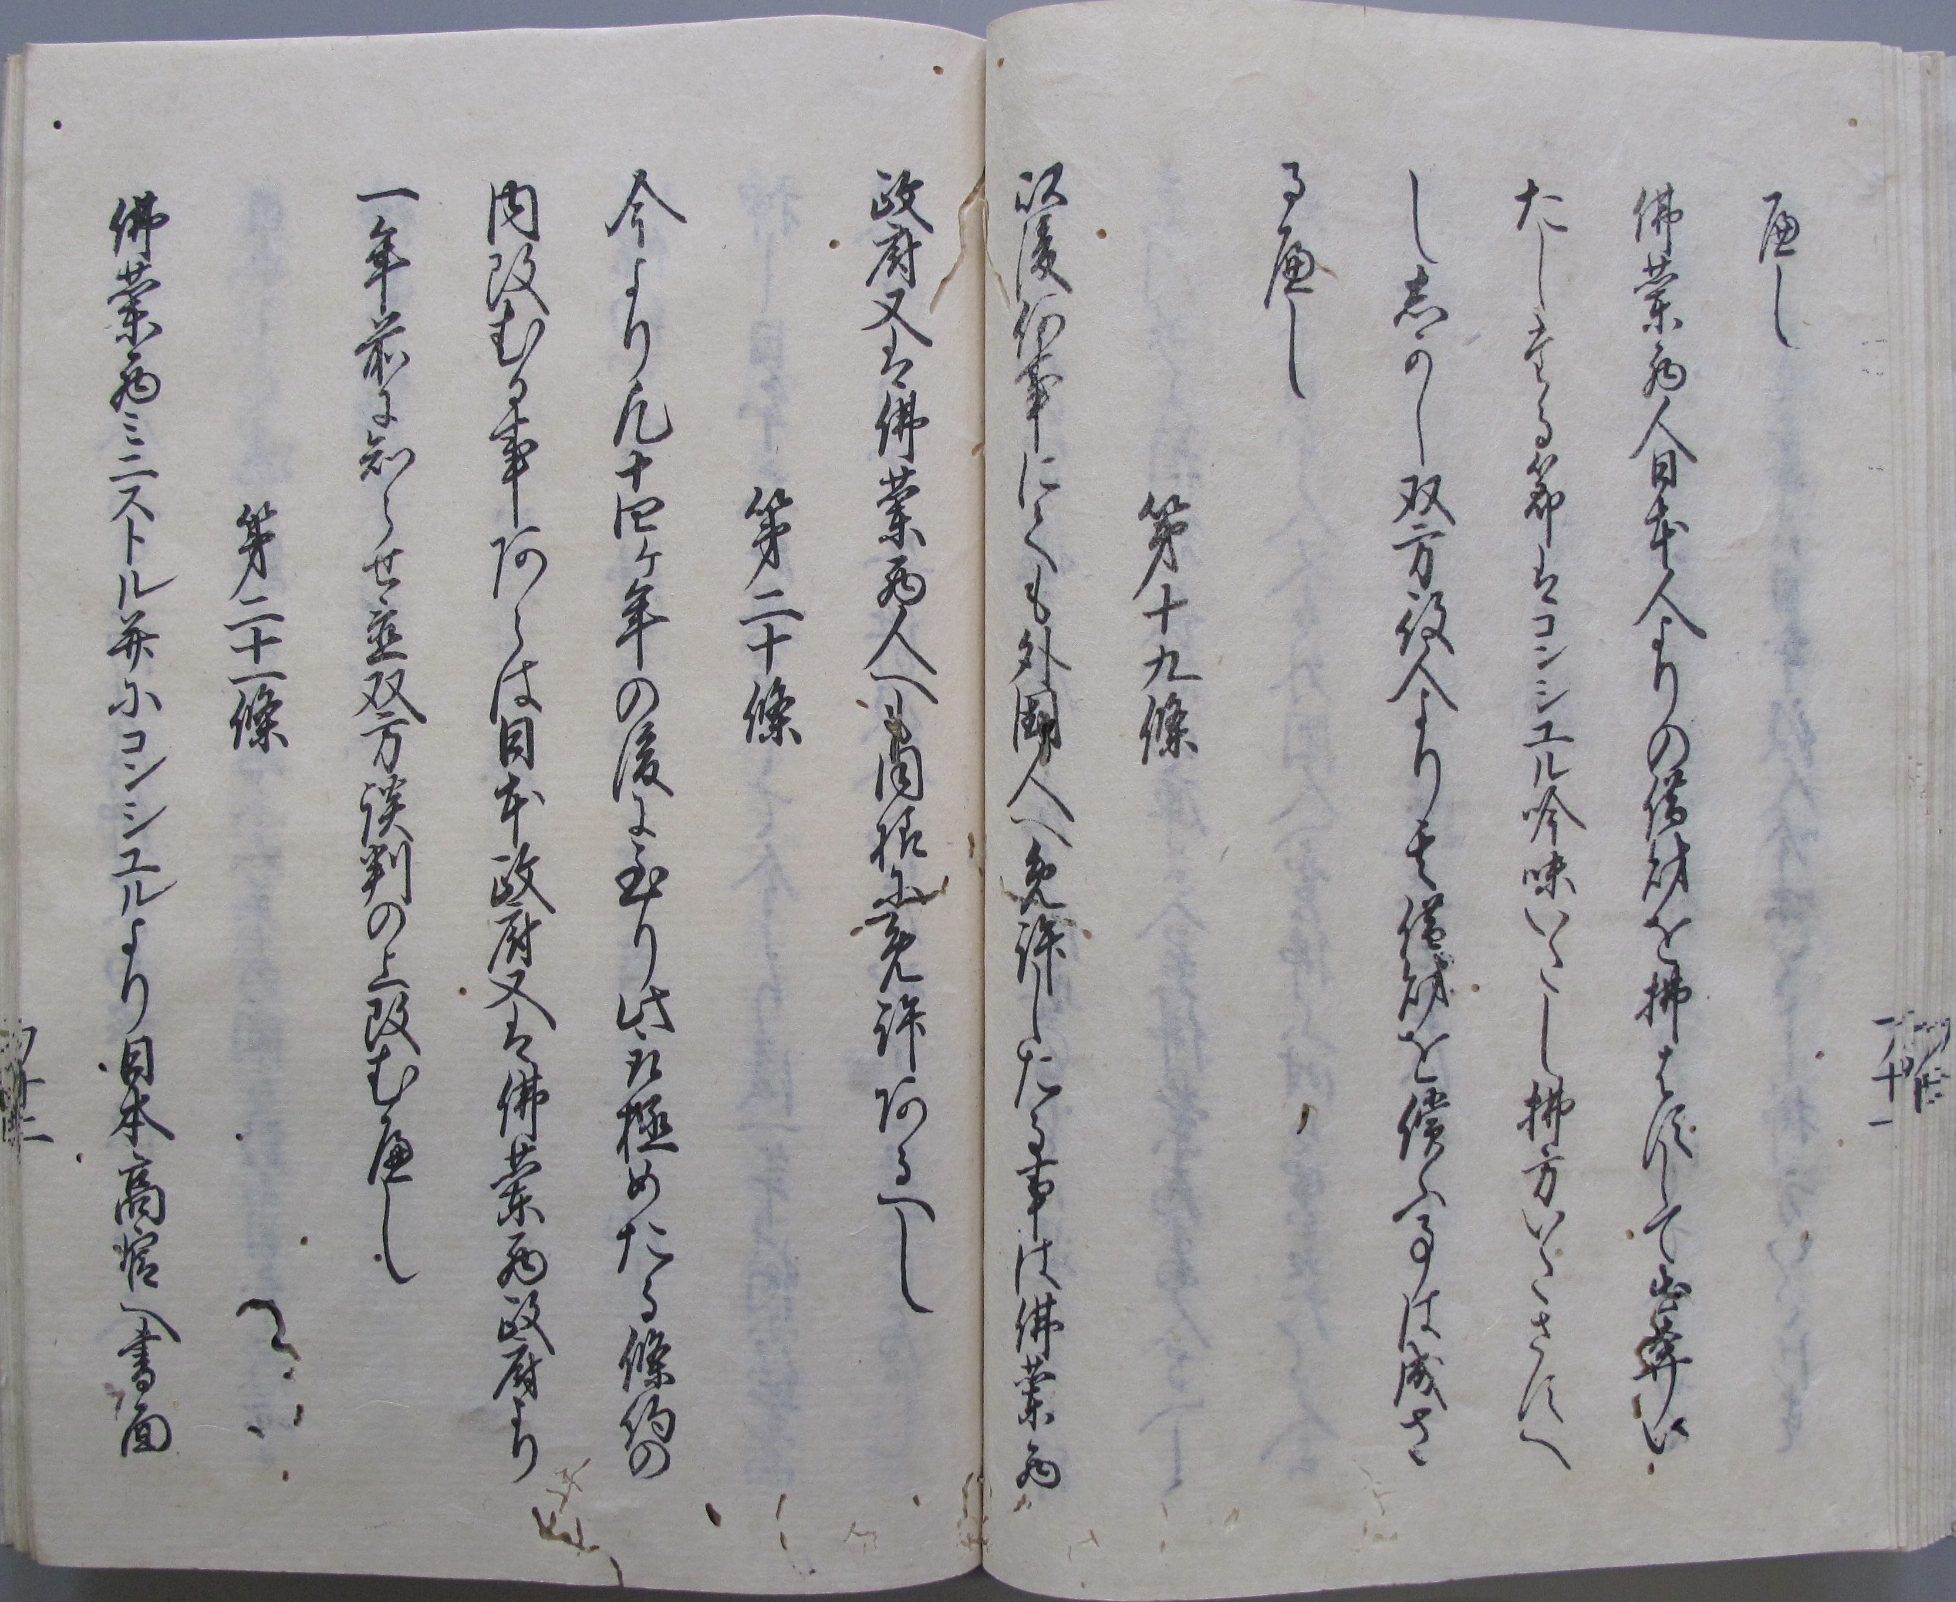 へし
佛蘭西人日本人よりの借財を拂はすして出奔い
たしたる節はコンシユル吟味いたし拂方いたさすへ
し志かし双方役人より其償財を償ふ事は成さ
るへし
第十九條
以後何事にても外國人へ免許したる事は佛蘭西
政府又は佛蘭西人へも同様に免許あるへし
第二十條
今より凡十四ヶ年の後に至り此取極めたる條約の
内改むる事あらは日本政府又は佛蘭西政府より
一年前に知らせ並双方談判の上改むへし
第二十一條
佛蘭西ミニストル并にコンシユルより日本高官へ書面